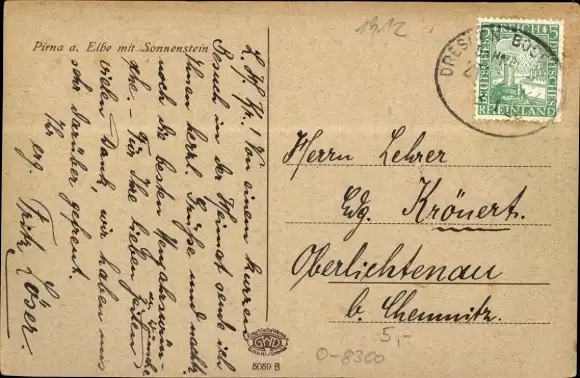 Pirna a. Elbe mit Sonnenstein
L. H. Kr.! Von einem kurzen
Besuch in der Heimat sende ich
Ihnen herzl. Grüße und nachtr.
noch die besten Neujahrswün-
sche. - Für Ihre lieben Zeilen
u. Wünsche
vielen Dank, wir haben uns
sehr darüber gefreut.
Ihr
erg. Fritz Löser.
1912
DRESDEN-BO
DEUTSCHES REICH
5
RHEINLAND
Herrn Lehrer
Edg. Krönert.
Oberlichtenau
b. Chemnitz.
5,-
0-8300
5059 B